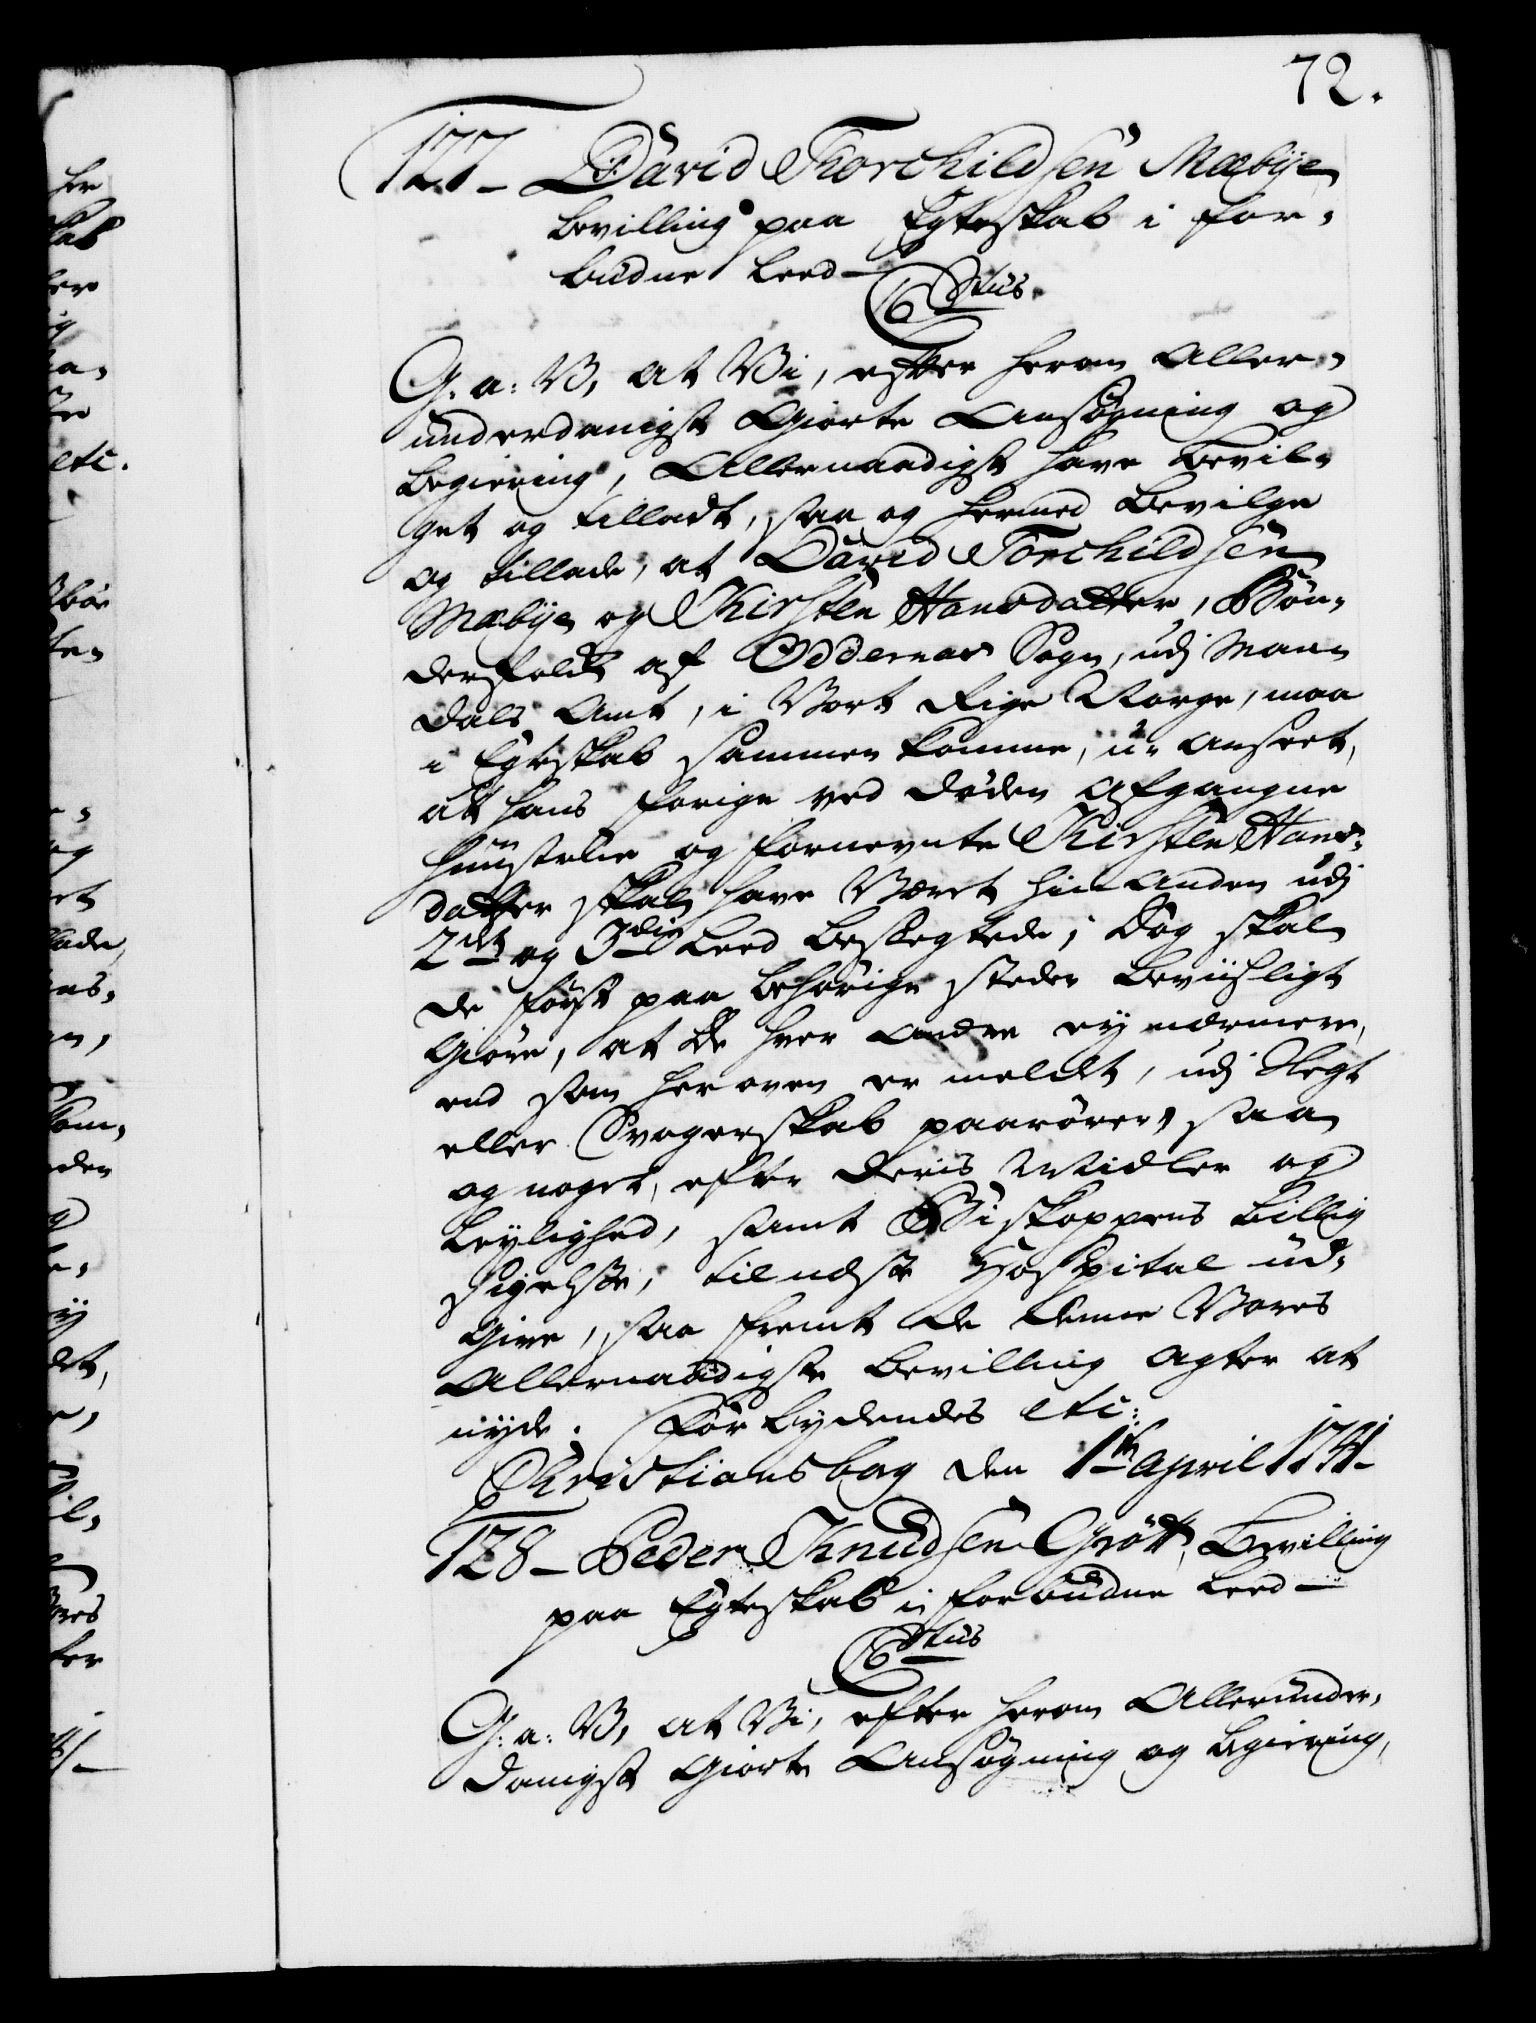 72.
127 - David Torchildsen Mæbye
Bevilling paa Egteskab i for-
budne Leed -
C6 Stus.
G: a: V, at Vi, efter herom Aller-
underdanigst Giorte Ansøgning og
Begiering, Allernaadigst have bevil-
get og tilladt, saa og hermed bevilge
og tillade, at David Torchildsen
Mæbye og Kirsten Hansdatter, Bøn-
dersfolk af Oddernæs Sogn, udj Man-
dals Amt, i Vort Rige Norge, maa
i Egteskab sammen komme, u-anseet,
at hans forige ved døden afgangne
Huustrue og fornevnte Kirsten Hans-
datter skal have Været hinanden udj
2det og 3die Leed beslegtede; Dog skal
de først paa behørige steder beviisligt
Giøre, at de hver andre ey nærmere,
end som her oven er meldt, udj Slegt
eller Svogerskab paarører, saa
og noget, efter deris Midler og
Leylighed, samt Biskoppens billig
sigelse, til næste Hospital ud-
Give, saa fremt de denne Vores
Allernaadigste Bevilling agter at
nyde. Forbydendes etc:
Christiansborg den 1te April 1741-
128 - Peder Knudsen Grøtt, Bevilling
paa Egteskab i forbudne Leed -
C6 Stus
G: a: V, at Vi, efter herom Allerunder-
danigst Giorte Ansøgning og begiering,